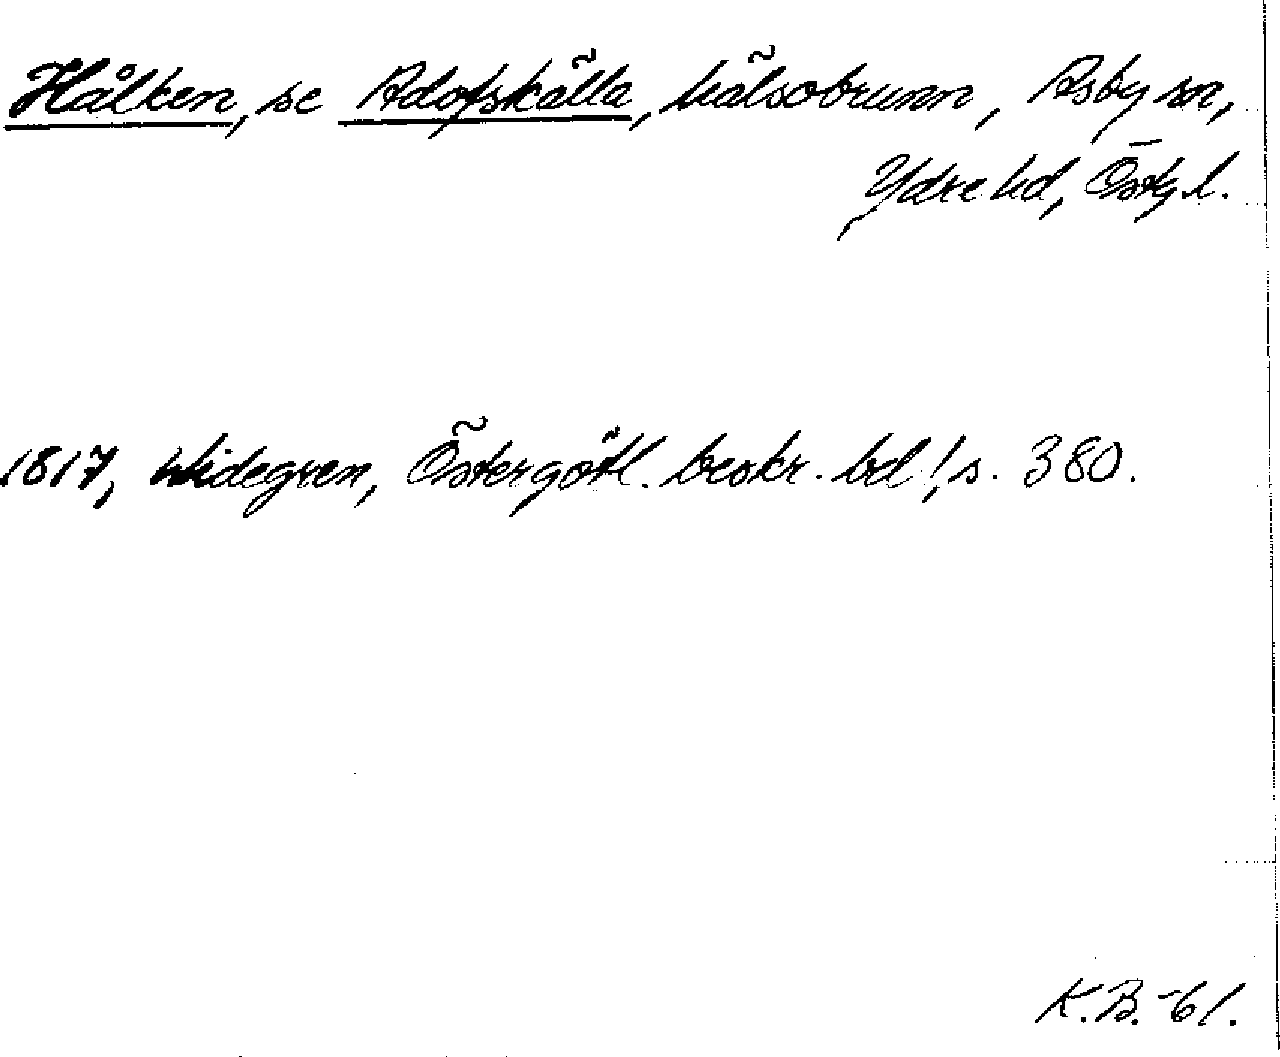 Hålken, se Adofskälla, hälsobrunn, Asby sn,
Ydre hd, Östg. l.
1817, Widegren, Östergötl. beskr. bd 1, s. 380.
K.B. -61.